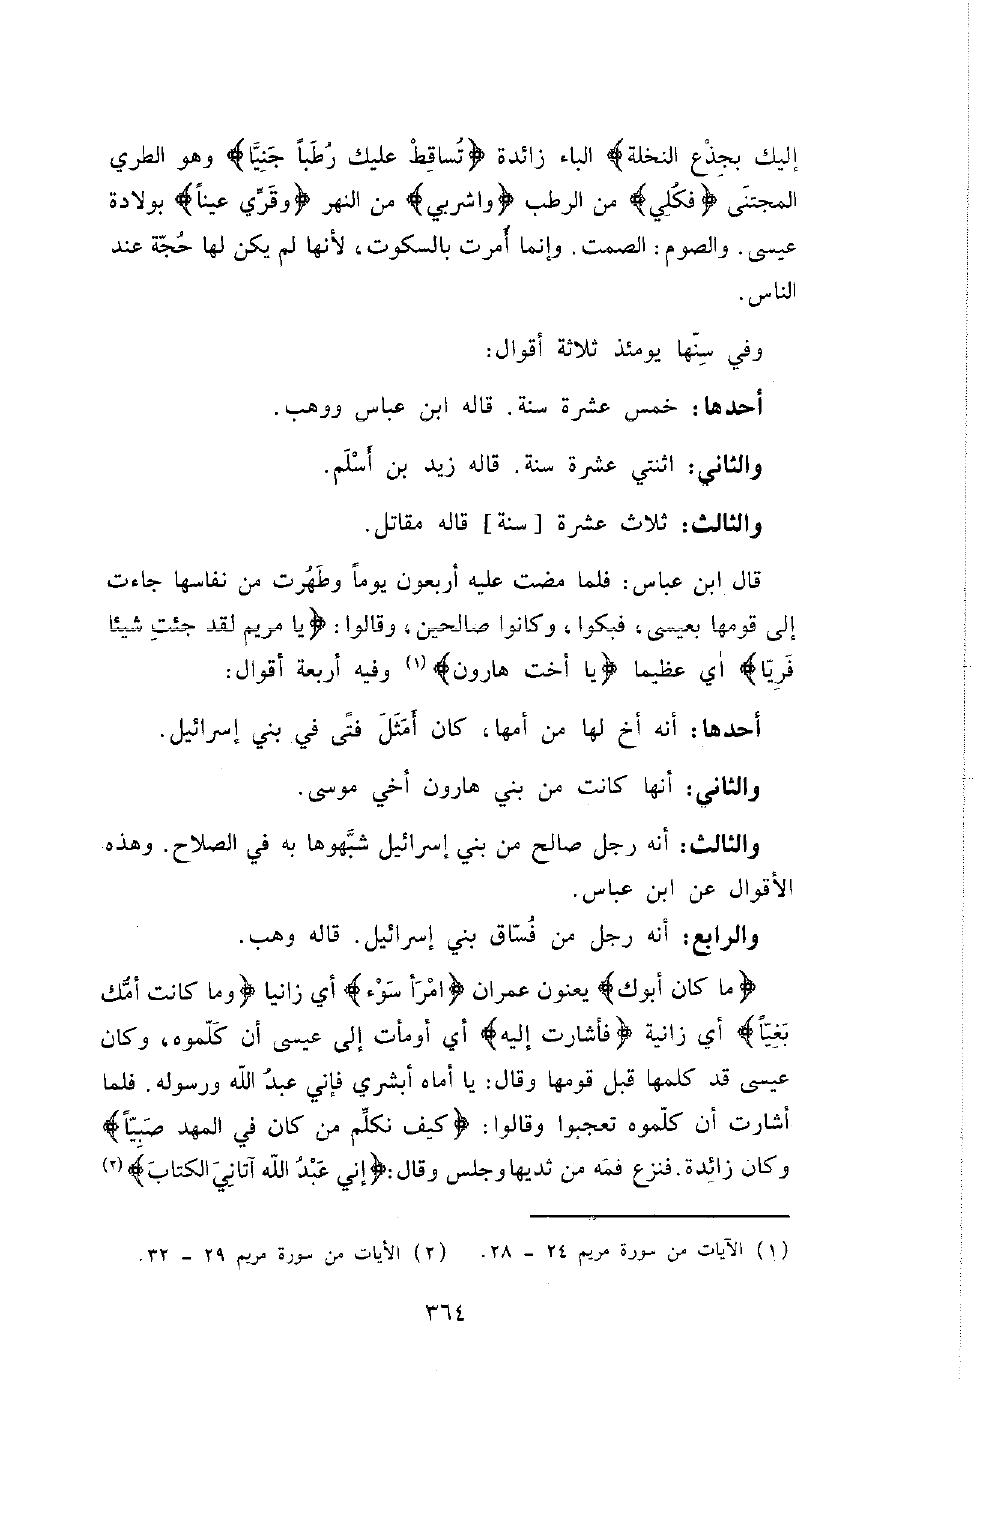 إليك بجِذْع النخلة﴾ الباء زائدة ﴿تُساقِطْ عليك رُطَباً جَنِيَّا﴾ وهو الطري
المجتنَى ﴿فكُلي﴾ من الرطب ﴿واشربي﴾ من النهر ﴿وقَرِّي عيناً﴾ بولادة
عيسى. والصوم: الصمت. وإنما أُمرت بالسكوت، لأنها لم يكن لها حُجّة عند
الناس.
وفي سِنّها يومئذ ثلاثة أقوال:
أحدها: خمس عشرة سنة. قاله ابن عباس ووهب.
والثاني: اثنتي عشرة سنة. قاله زيد بن أَسْلَم.
والثالث: ثلاث عشرة [سنة] قاله مقاتل.
قال ابن عباس: فلما مضت عليه أربعون يوماً وطَهُرت من نفاسها جاءت
إلى قومها بعيسى، فبكوا، وكانوا صالحين، وقالوا: ﴿يا مريم لقد جئتِ شيئا
فَرِيّا﴾ أي عظيما ﴿يا أخت هارون﴾(١) وفيه أربعة أقوال:
أحدها: أنه أخ لها من أمها، كان أَمَثَلَ فتًى في بني إسرائيل.
والثاني: أنها كانت من بني هارون أخي موسى.
والثالث: أنه رجل صالح من بني إسرائيل شبَّهوها به في الصلاح. وهذه
الأقوال عن ابن عباس.
والرابع: أنه رجل من فُسّاق بني إسرائيل. قاله وهب.
﴿ما كان أبوك﴾ يعنون عمران ﴿امْرَأ سَوْء﴾ أي زانيا ﴿وما كانت أمّك
بَغِيّاً﴾ أي زانية ﴿فأشارت إليه﴾ أي أومأت إلى عيسى أن كَلّموه، وكان
عيسى قد كلمها قبل قومها وقال: يا أماه أبشري فإني عبدُ الله ورسوله. فلما
أشارت أن كلّموه تعجبوا وقالوا: ﴿كيف نكلِّم من كان في المهد صَبِيّاً﴾
وكان زائدة. فنزع فمَه من ثديها وجلس وقال: ﴿إني عَبْدُ الله آتانيَ الكتابَ﴾(٢)
(١) الآيات من سورة مريم ٢٤ - ٢٨. (٢) الأيات من سورة مريم ٢٩ - ٣٢.
٣٦٤